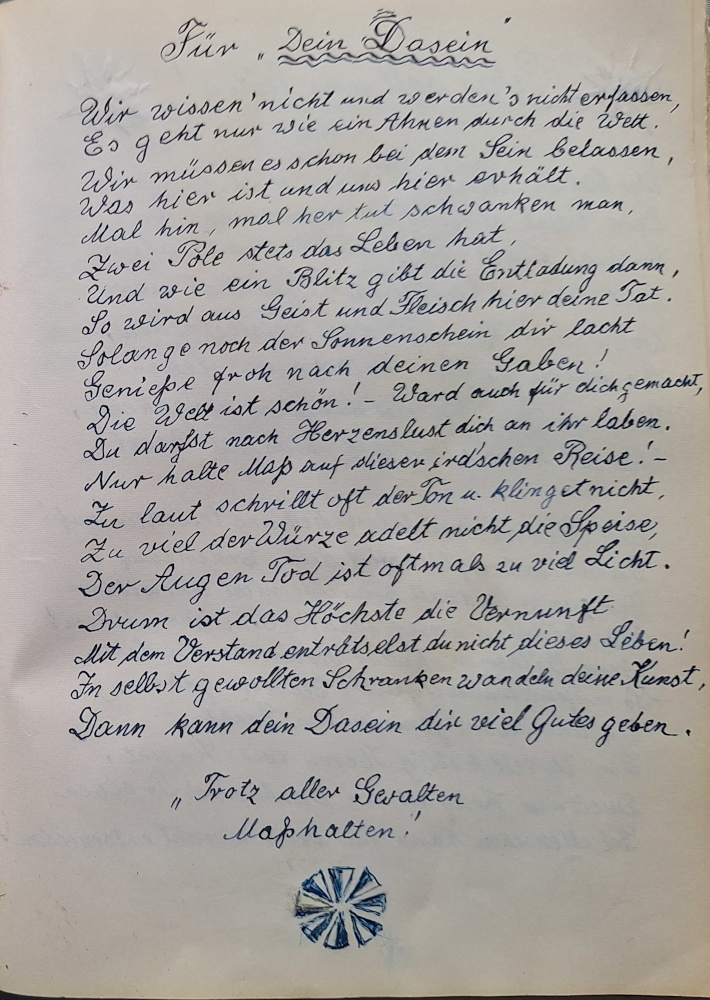 Für „Dein Dasein“
Wir wissen's nicht und werden's nicht erfassen,
Es geht nur wie ein Ahnen durch die Welt.
Wir müssen es schon bei dem Sein belassen,
Was hier ist und uns hier erhält.
Mal hin, mal her tut schwanken man,
Zwei Pole stets das Leben hat,
Und wie ein Blitz gibt die Entladung dann,
So wird aus Geist und Fleisch hier deine Tat.
Solange noch der Sonnenschein dir lacht
Genieße froh nach deinen Gaben!
Die Welt ist schön! - Ward auch für dich gemacht,
Du darfst nach Herzenslust dich an ihr laben.
Nur halte Maß auf dieser ird'schen Reise! -
Zu laut schrillt oft der Ton u. klinget nicht,
Zu viel der Würze adelt nicht die Speise,
Der Augen Tod ist oftmals zu viel Licht.
Drum ist das Höchste die Vernunft
Mit dem Verstand enträtselst du nicht dieses Leben!
In selbst gewollten Schranken wandeln deine Kunst,
Dann kann dein Dasein dir viel Gutes geben.
„Trotz aller Gewalten
Maßhalten!